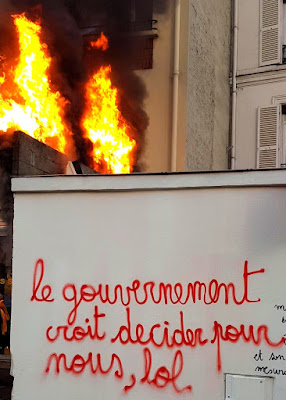 le gouvernement
croit decider pour
nous, lol
et son
mesure